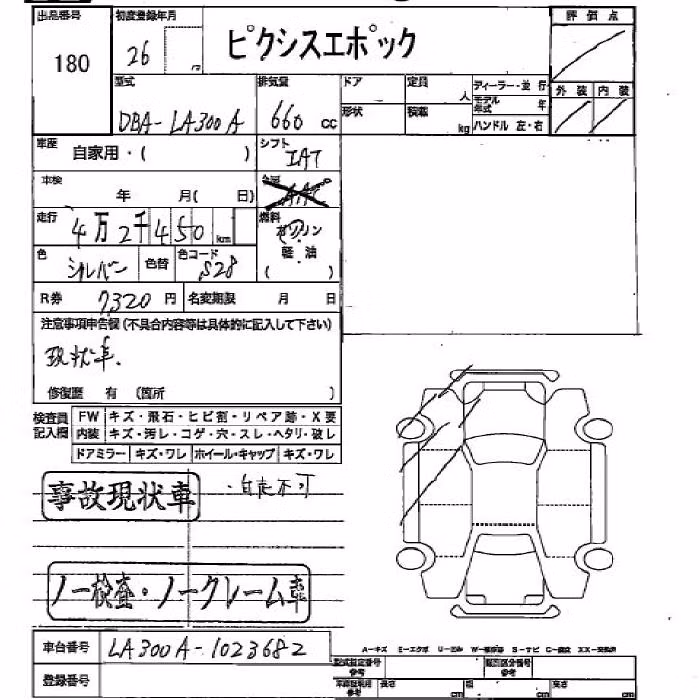 出品番号 初度登録年月 評価点
180 26 ピクシスエポック
型式 排気量 ドア 定員 人 ディーラー・並行
モデル年式 年 外装 内装
DBA-LA300A 660cc 形状 積載 kg ハンドル 左・右
車歴 自家用・( ) シフト IAT
車検 年 月( 日)
走行 4万2千450km 燃料 ガソリン
軽油
( )
色 シルバー 色替 色コード S28
R券 7,320円 名変期限 月 日
注意事項申告欄(不具合内容等は具体的に記入して下さい)
現状車.
修復歴 有 (箇所 )
検査員記入欄 FW キズ・飛石・ヒビ割・リペア跡・X要
内装 キズ・汚レ・コゲ・穴・スレ・ヘタリ・破レ
ドアミラー キズ・ワレ ホイール・キャップ キズ・ワレ
事故現状車 ・自走不可
ノー検査・ノークレーム車
車台番号 LA300A-1023682
登録番号
A-キズ E-エクボ U-凹み W-補修跡 S-サビ C-腐食 XX-交換済
型式指定番号 参考 類別区分番号 参考
車両証明用 参考 長さ cm 幅 cm 高さ cm